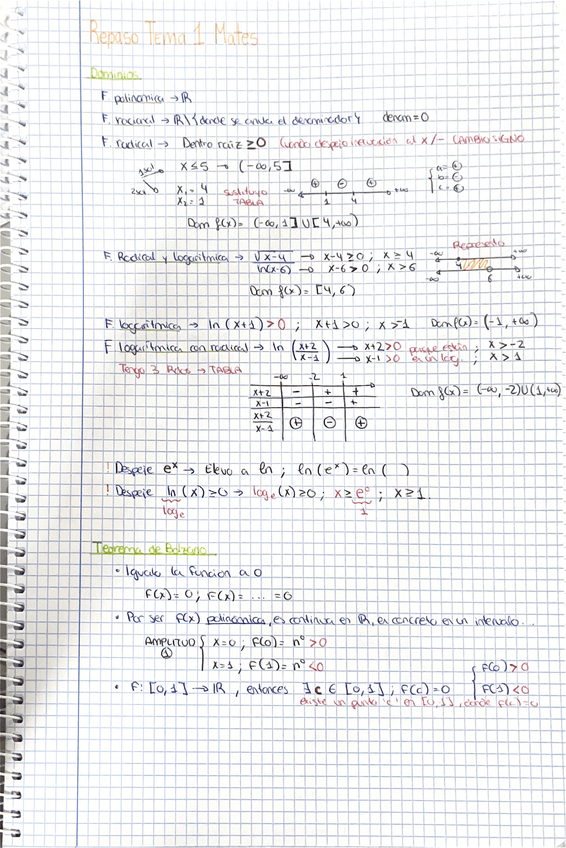 Repaso Tema 1 Mates
Dominios
F. polinómica → ℝ
F. racional → ℝ \ {donde se anula el denominador} denom = 0
F. radical → Dentro raíz ≥ 0 Cuando despejo inecuación al x/- CAMBIO SIGNO
1 sol x ≤ 5 → (-∞, 5]
2 sol x₁ = 4 sustituyo -∞ ⊕ ⊖ ⊕ +∞ a= ⊕
x₂ = 1 TABLA 1 4 b= ⊖
c= ⊕
Dom f(x) = (-∞, 1] U [4, +∞)
F. Radical y logarítmica → √x-4 → x-4 ≥ 0 ; x ≥ 4 Represento
ln(x-6) → x-6 > 0 ; x > 6 -∞ 4 6 +∞
Dom f(x) = [4, 6)
F. logarítmica → ln (x+1) > 0 ; x+1 > 0 ; x > -1 Dom f(x) = (-1, +∞)
F logarítmica con racional → ln (x+2 / x-1) → x+2 > 0 porque están ; x > -2
→ x-1 > 0 en un log. ; x > 1
Tengo 3 → TABLA
-∞ -2 1
x+2 - + +
x-1 - - +
x+2 / x-1 ⊕ ⊖ ⊕
Dom f(x) = (-∞, -2) U (1, +∞)
! Despeje eˣ → Elevo a ln ; ln (eˣ) = ln ( )
! Despeje ln (x) ≥ 0 → logₑ (x) ≥ 0 ; x ≥ e⁰ ; x ≥ 1
logₑ 1
Teorema de Bolzano
• Igualo la función a 0
F(x) = 0 ; F(x) = ... = 0
• Por ser f(x) polinómica, es continua en ℝ, en concreto en un intervalo...
AMPLITUD { x = 0 ; F(0) = nº > 0
① x = 1 ; F(1) = nº < 0
F(0) > 0
• F: [0, 1] → ℝ , entonces ∃ c ∈ [0, 1] ; F(c) = 0 F(1) < 0
existe un punto 'c' en [0, 1], donde F(c) = 0